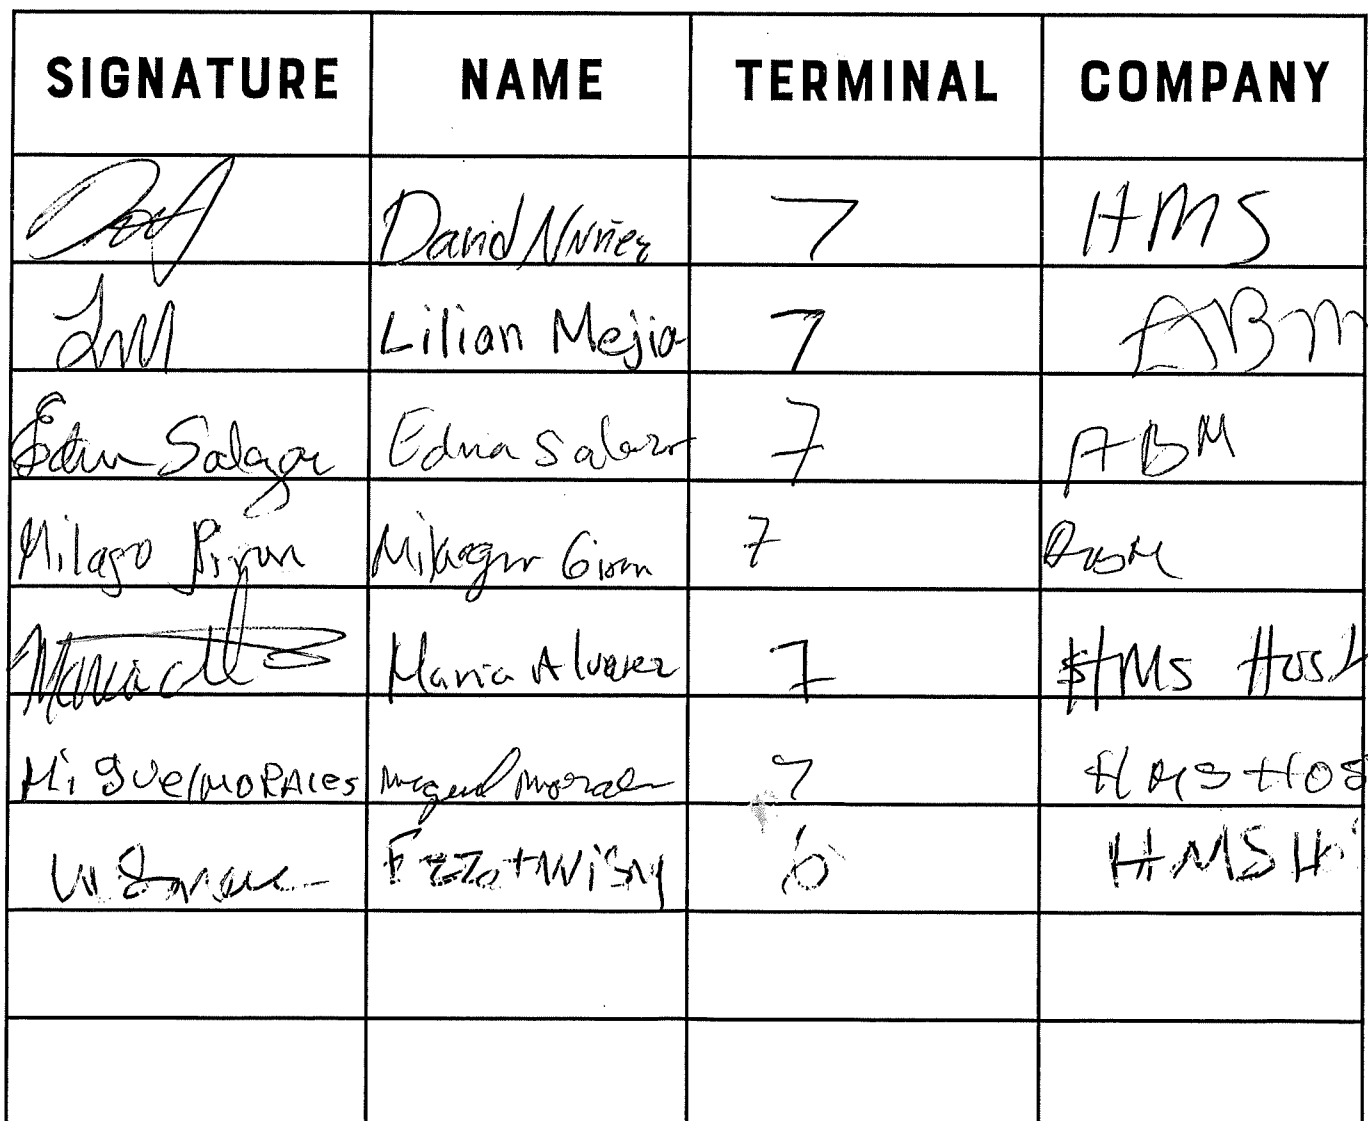 SIGNATURE NAME TERMINAL COMPANY
David Nuñez 7 HMS
LM Lilian Mejia 7 ABM
Edna Salazar Edna Salazar 7 ABM
Milagro Giron Milagro Giron 7 ABM
Maria Maria Alvarez 7 HMS Host
MiguelMORAles Miguel Morales 7 HMS HOS
6 HMS H